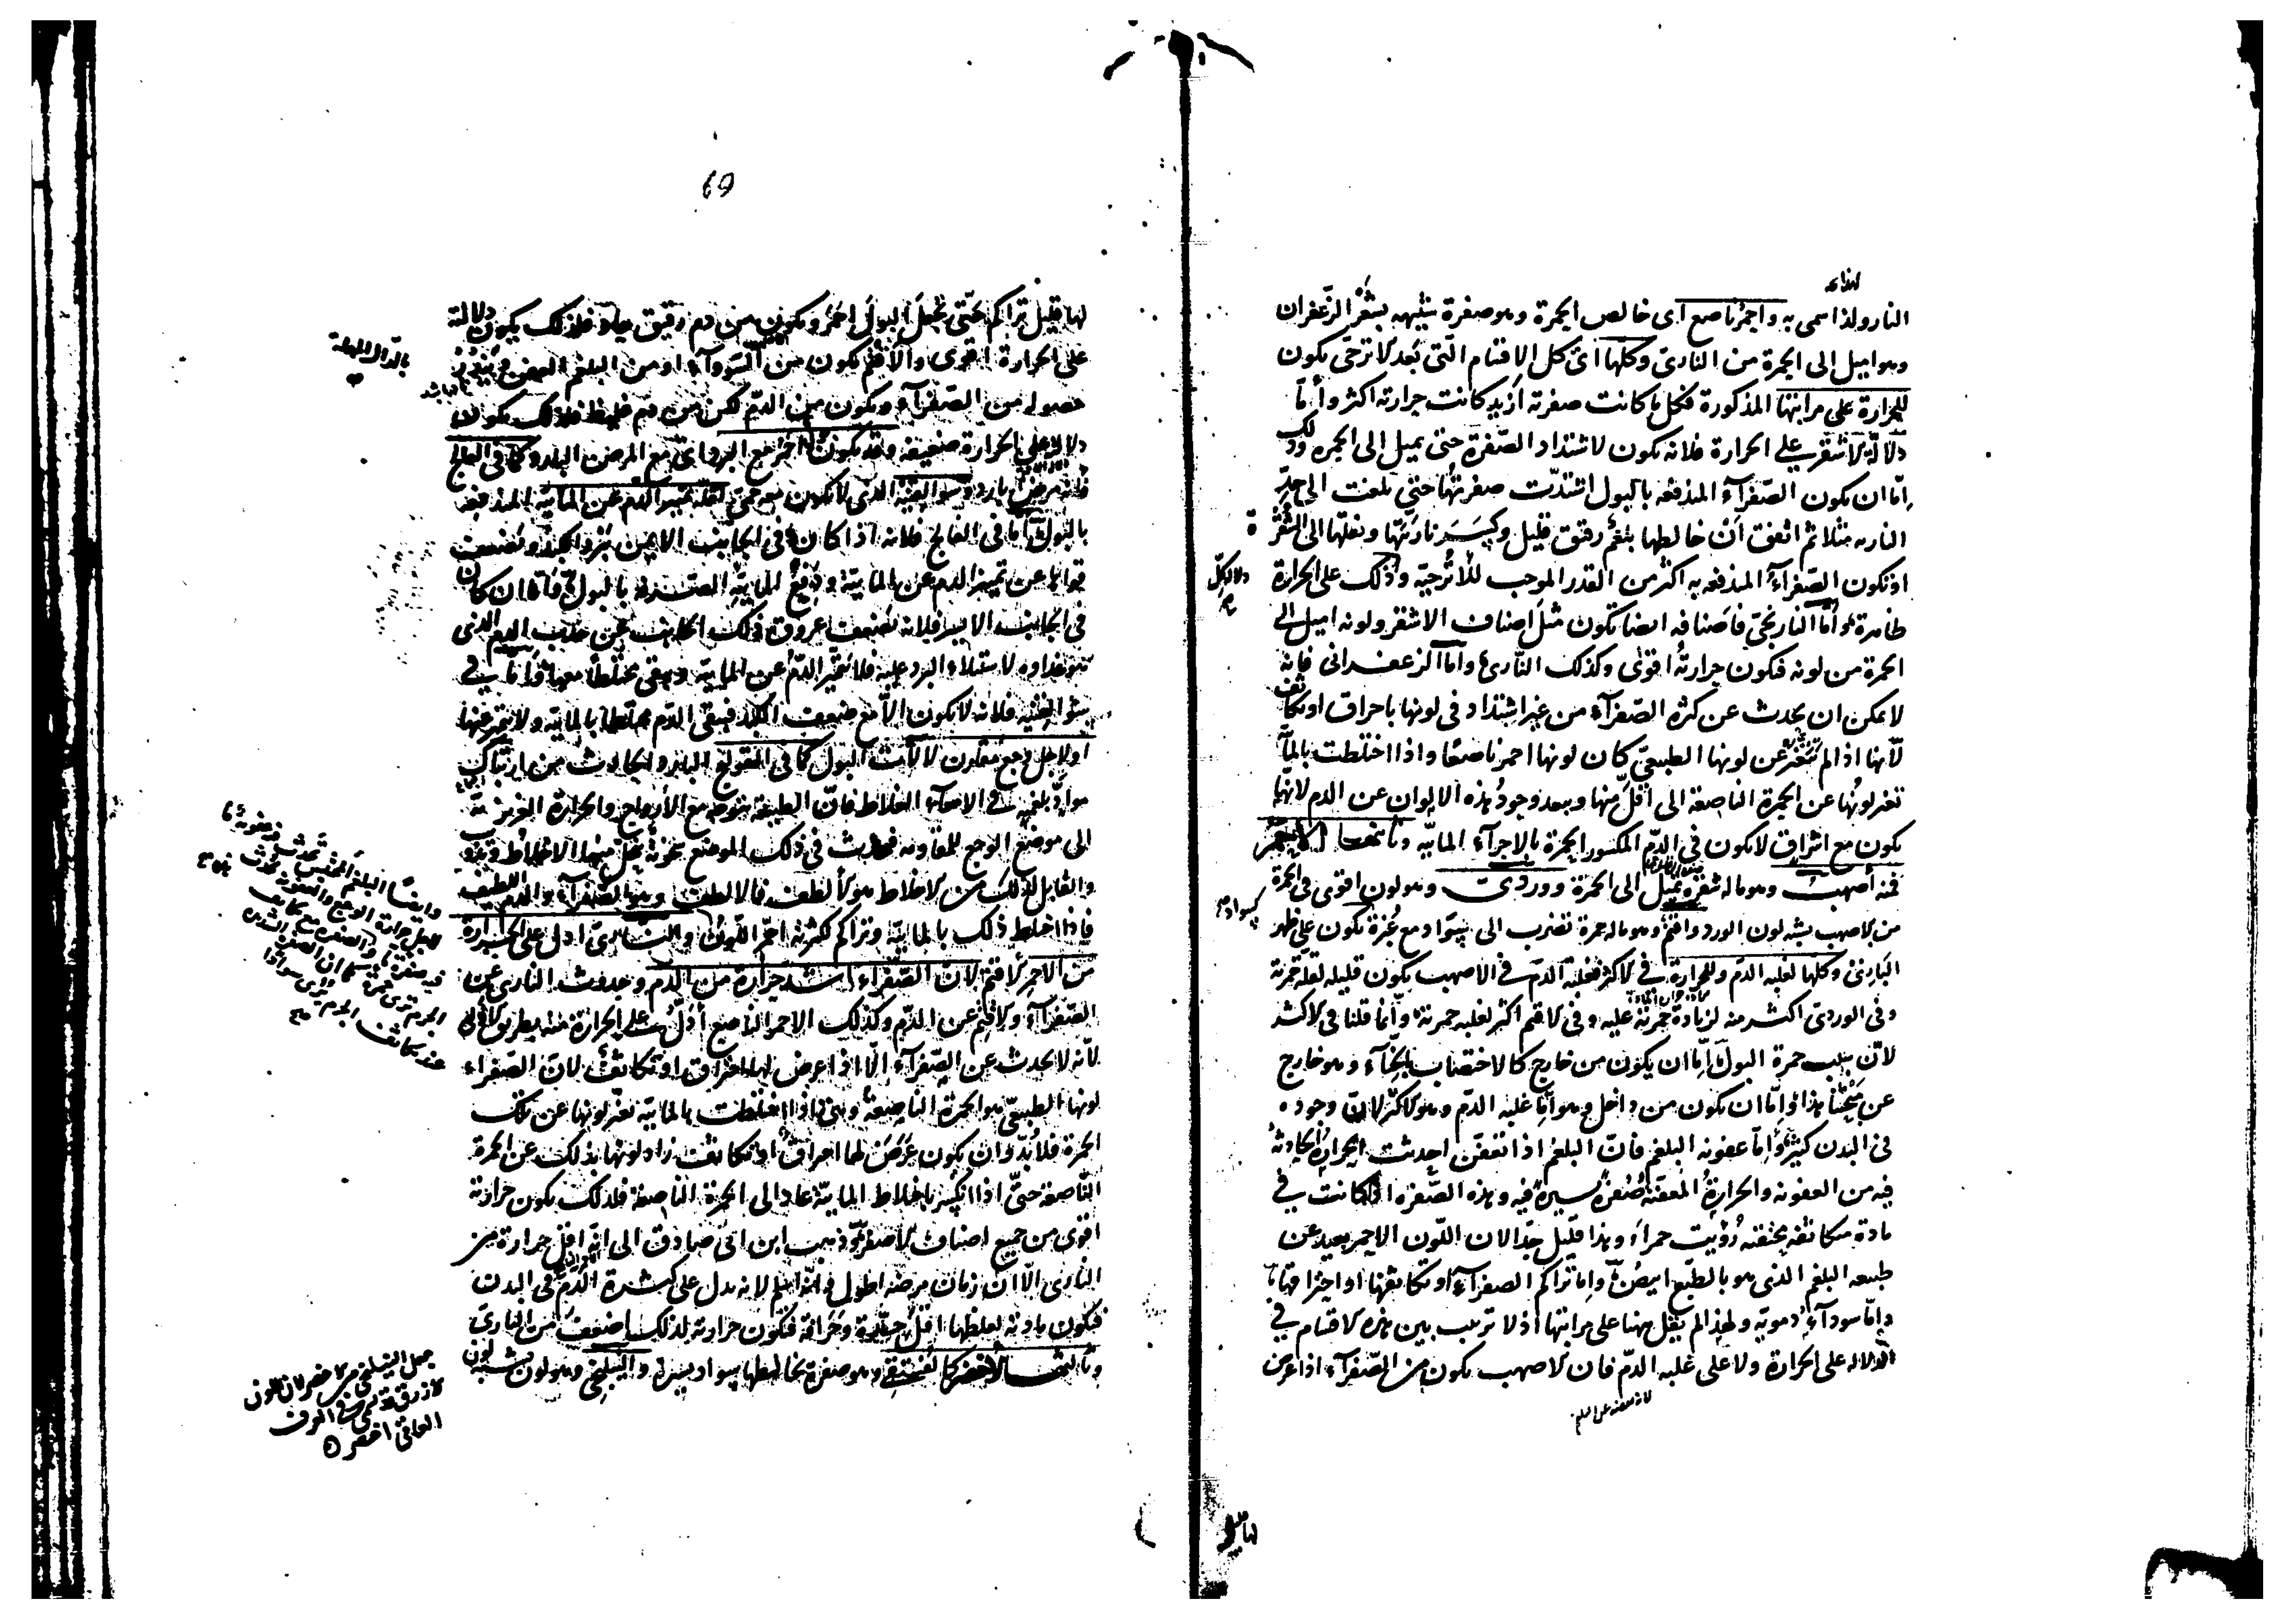 لهذا
النار ولذا سمى به واحمر ناصع اى خالص الحمرة وهو صفرة يشبهه بشعر الزعفران
وهو اميل الى الحمرة من النارى وكلها اى كل الاقسام التى بعد الاترجى يكون
للحرارة على مراتبها المذكورة فكل ما كانت صفرته ازيد كانت حرارته اكثر واما
دلالة الاشقر على الحرارة فلانه يكون لاشتداد الصفرة حتى يميل الى الحمرة وذلك
اما ان يكون الصفرآء المندفعه بالبول اشتدت صفرتها حتى بلغت الى حد
الناريه مثلا ثم اتفق ان خالطها بلغم رقيق قليل وكسر ناريتها ونقلها الى الشقرة
او تكون الصفرآء المندفعه به اكثر من القدر الموجب للاترجيه وذلك على الحرارة
دلالة كل
ظاهرة واما النارنجى فاصنافه ايضا تكون مثل اصناف الاشقر ولونه اميل الى
الحمرة من لونه فتكون حرارته اقوى وكذلك النارى واما الزعفرانى فانه
لا يمكن ان يحدث عن كثرة الصفرآء من غير اشتداد فى لونها باحراق او تكاثف
لانها اذا لم تتغير عن لونها الطبيعى كان لونها احمر ناصعا واذا اختلطت بالمآء
تغير لونها عن الحمرة الناصعة الى اقل منها ويبعد وجود هذه الالوان عن الدم لانها
يكون مع اشراق لا يكون فى الدم المكسور الحمرة بالاجزآء المائيه وثانيها الاحمر
فمنه اصهب وهو ماله شقرة يميل الى الحمرة ووردى وهو لون اقوى فى الحمرة
من الاصهب يشبه لون الورد واقتم وهو ماله حمرة تضرب الى سواد مع غبرة تكون على ظهر
كسواد
البازى وكلها لغلبه الدم وللحرارة فى الاكثر فغلبة الدم فى الاصهب يكون قليله لقلة حمرته
وفى الوردى اكثر منه لزيادة حمرته عليه وفى الاقتم اكثر لغلبه حمرته وانما قلنا فى الاكثر
لان سبب حمرة البول اما ان يكون من خارج كالاختضاب بالحنآء وهو خارج
عن مبحثنا هذا او اما ان يكون من داخل وهو اما غلبه الدم وهو الاكثر لان وجوده
فى البدن كثير واما عفونه البلغم فان البلغم اذا تعفن احدثت الحرارة الحادثة
فيه من العفونه والحرارة المعفنة صفرة يسيرة فيه وهذه الصفره اذا كانت فى
مادة متكاثفه مختنقه رؤيت حمرآء وهذا قليل جدا لان اللون الاحمر بعيد عن
طبيعه البلغم الذى هو بالطبع ابيض واما تراكم الصفرآء او تكاثفها او احتراقها
واما سودآء دمويه ولهذا لم يقل هنا على مراتبها اذ لا ترتيب بين هذه الاقسام فى
الدلاله على الحرارة ولا على غلبه الدم فان الاصهب يكون من الصفرآء اذا عرض
69
لها قليل تراكم حتى تجعل البول احمر ويكون من دم رقيق حاد فلذلك يكون دلالته
على الحرارة اقوى والاقتم يكون من السودآء او من البلغم العفن ويندر
بالدال المهملة
حصوله من الصفرآء ويكون من الدم لكن من دم غليظ فلذلك يكون
دلالته على الحرارة ضعيفه وقد يكون احمر مع البرد اى مع المرض البارد كما فى الفالج
فانه مرض بارد وسوء القنيه الذى لا يكون معه حمى لقلة تميز الدم عن المائيه المندفعه
بالبول اما فى الفالج فلانه اذا كان فى الجانب الايمن برد الكبد وضعفت
قواها عن تميز الدم عن المائية ودفع المائيه الصرفه بالبول واما ان كان
فى الجانب الايسر فلانه تضعف عروق ذلك الجانب عن جذب الدم الذى
هو غذاوه لاستيلاء البرد عليه فلا تميز الدم عن المائية ويبقى مختلطا معها واما فى
سوء القنيه فلانه لا يكون الا مع ضعف الكبد فيبقى الدم مختلطا بالمائيه ولا يتميز عنها
او لاجل وجع مقارن لالات البول كما فى القولنج البارد الحادث من ارتباك
مواد بلغميه فى الامعآء الغلاظ فان الطبيعة يتوجه مع الارواح والحرارة الغريزية
الى موضع الوجع للمقاومه فيحدث فى ذلك الموضع سخونة يتحلل منها الاخلاط وتذوب
والقابل لذلك من الاخلاط هو الالطف فالالطف وهو الصفرآء والدم اللطيف
فاذا اختلط ذلك بالمائيه وتراكم لكثرته احمر اللون والنارى ادل على الحرارة
من الاحمر الاقتم لان الصفراء اشد حرارة من الدم وحدوث النارى عن
الصفرآء والاقتم عن الدم وكذلك الاحمر الناصع ادل على الحرارة منه بطريق الاولى
لانه لا يحدث عن الصفرآء الا اذا عرض لها احتراق او تكاثف لان الصفراء
لونها الطبيعى هو الحمرة الناصعة وهى اذا اختلطت بالمائيه تغير لونها عن تلك
الحمرة فلابد وان يكون عرض لها احراق او تكاثف زاد لونها بذلك عن الحمرة
الناصعة حتى اذا انكسر باختلاط المائية عاد الى الحمرة الناصعة فلذلك يكون حرارته
اقوى من جميع اصناف الاصفر وذهب ابن ابى صادق الى انه اقل حرارة من
النارى الا ان زمان مرضه اطول وانه اسلم لانه يدل على كثرة الدم فى البدن
فيكون مادته لغلظها اقل حدة وحرافة فتكون حرارته لذلك اضعف من النارى
وثالثها الاخضر كالفستقى وهو صفرة يخالطها سواد يسيرة والنيلنجى وهو لون يشبه لون
وايضا البلغم المحتبس تحدث عفونة
جعل النيلنجى من الاخضر لان اللون
الازرق قد يسمى فى العرف
العامى اخضر